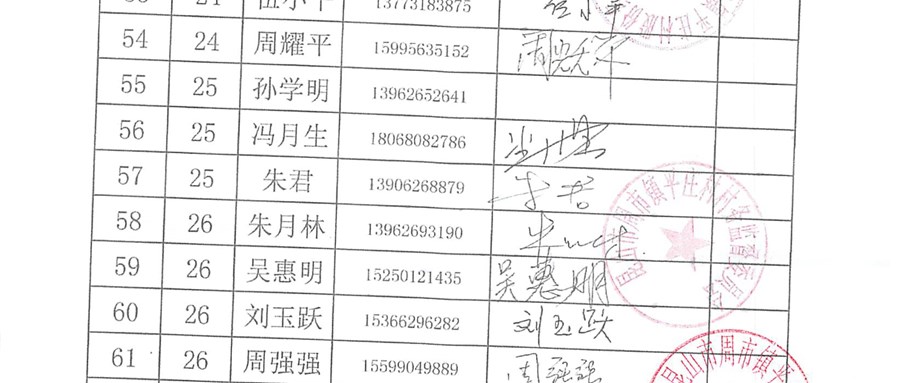 13773183875
54 24 周耀平 15995635152
55 25 孙学明 13962652641
56 25 冯月生 18068082786
57 25 朱君 13906268879 朱君
58 26 朱月林 13962693190
59 26 吴惠明 15250121435 吴惠明
60 26 刘玉跃 15366296282 刘玉跃
61 26 周强强 15599049889 周强强
昆山市周市镇平庄村村务监督委员会
昆山市周市镇平